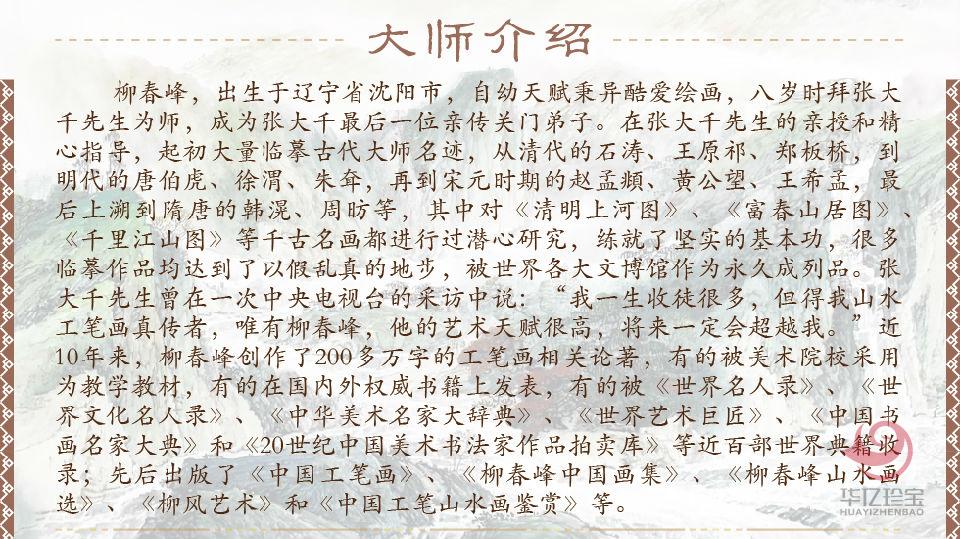 大师介绍
柳春峰，出生于辽宁省沈阳市，自幼天赋秉异酷爱绘画，八岁时拜张大
千先生为师，成为张大千最后一位亲传关门弟子。在张大千先生的亲授和精
心指导，起初大量临摹古代大师名迹，从清代的石涛、王原祁、郑板桥，到
明代的唐伯虎、徐渭、朱耷，再到宋元时期的赵孟頫、黄公望、王希孟，最
后上溯到隋唐的韩滉、周昉等，其中对《清明上河图》、《富春山居图》、
《千里江山图》等千古名画都进行过潜心研究，练就了坚实的基本功，很多
临摹作品均达到了以假乱真的地步，被世界各大文博馆作为永久成列品。张
大千先生曾在一次中央电视台的采访中说：“我一生收徒很多，但得我山水
工笔画真传者，唯有柳春峰，他的艺术天赋很高，将来一定会超越我。”近
10年来，柳春峰创作了200多万字的工笔画相关论著，有的被美术院校采用
为教学教材，有的在国内外权威书籍上发表，有的被《世界名人录》、《世
界文化名人录》、《中华美术名家大辞典》、《世界艺术巨匠》、《中国书
画名家大典》和《20世纪中国美术书法家作品拍卖库》等近百部世界典籍收
录；先后出版了《中国工笔画》、《柳春峰中国画集》、《柳春峰山水画
选》、《柳风艺术》和《中国工笔山水画鉴赏》等。
华亿珍宝
HUAYIZHENBAO